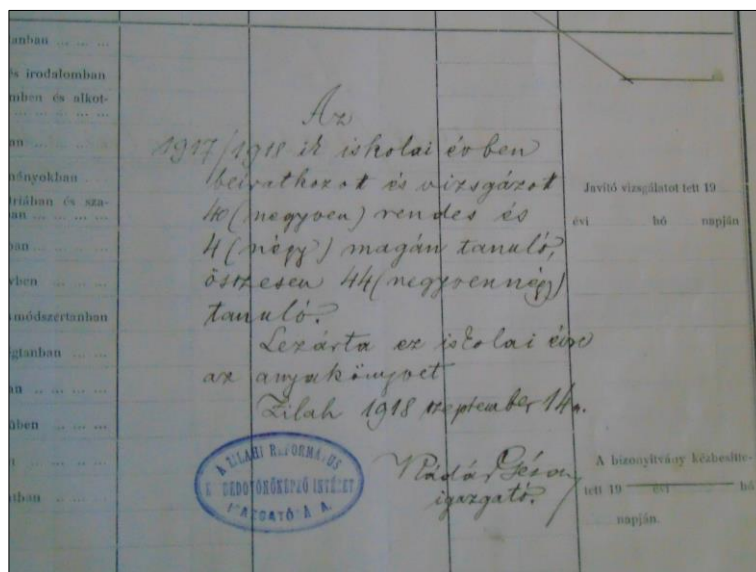 lanban ... ... ...
és irodalomban
mben és alkot-
... ... ... ... ...
an ... ... ...
ményokban
triában és sza-
ban ... ... ...
ban ... ... ...
vben ... ... ...
módszertanban
gtanban ... ...
an ... ... ...
üben ... ...
... ... ...
atban ... ...
Az
1917/1918 ik iskolai évben
beiratkozot és vizsgázot
40 (negyven) rendes és
4 (négy) magán tanuló,
összesen 44 (negyvennégy)
tanuló.
Lezárta ez iskolai évre
az anyakönyvet
Zilah 1918 szeptember 14n.
Kádár Géza
igazgató.
A ZILAHI REFORMÁTUS
INTÉZET
IGAZGATÓSÁGA
Javító vizsgálatot tett 19
évi hó napján
A bizonyítvány kézbesítte-
tett 19 évi hó
napján.